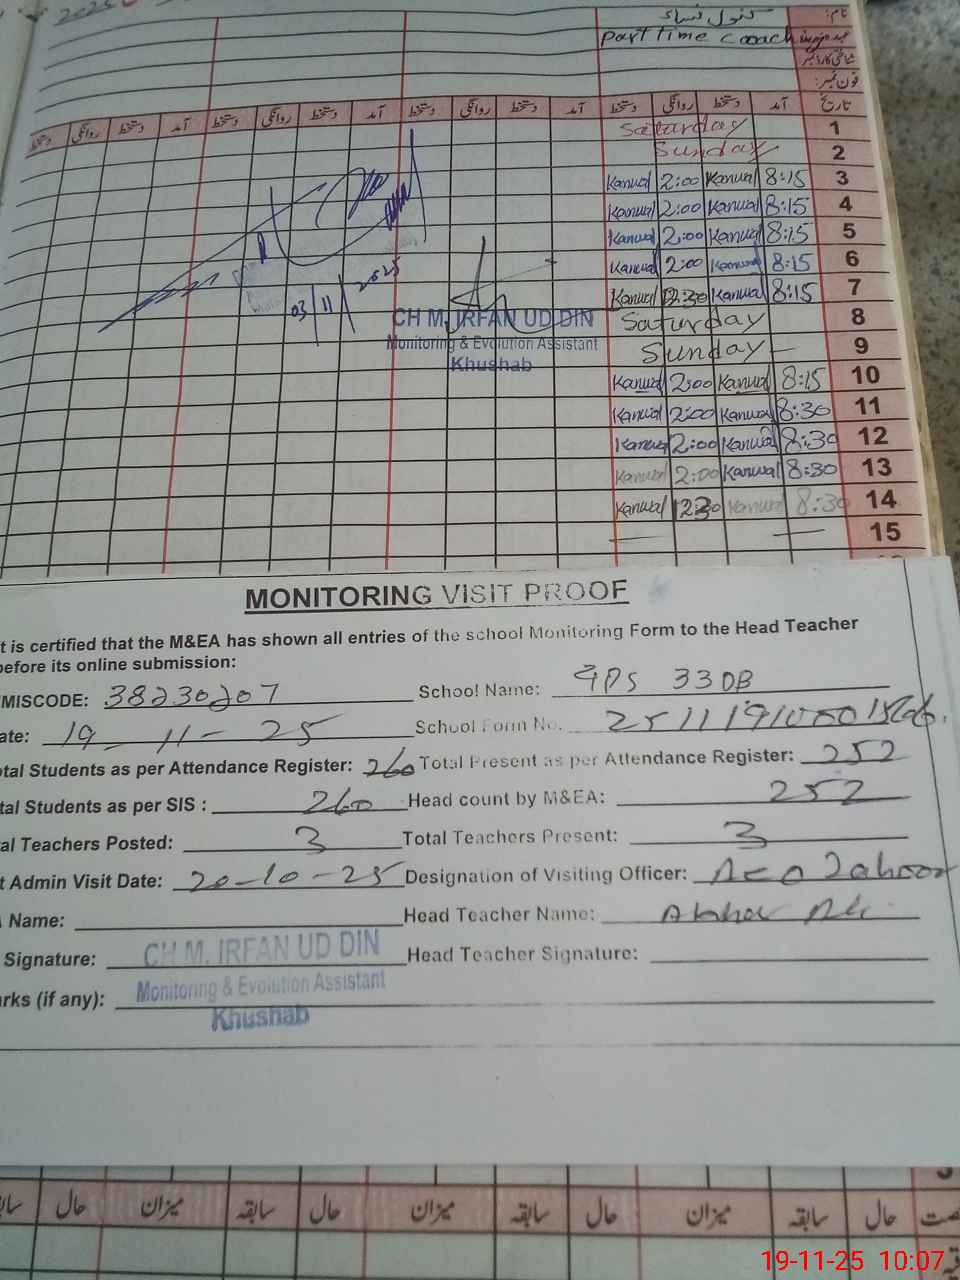 2025
نام: کنول نساء
عہدہ part time coach
شناختی کارڈ نمبر
فون نمبر:
تاریخ آمد دستخط روانگی دستخط آمد دستخط روانگی دستخط آمد دستخط روانگی دستخط
1 Saturday
2 Sunday
Kanwal 2:00 Kanwal 8:15 3
Kanwal 2:00 Kanwal 8:15 4
Kanwal 2:00 Kanwal 8:15 5
Kanwal 2:00 Kanwal 8:15 6
Kanwal 12:30 Kanwal 8:15 7
Saturday 8
Sunday 9
Kanwal 2:00 Kanwal 8:15 10
Kanwal 2:00 Kanwal 8:30 11
Kanwal 2:00 Kanwal 8:30 12
Kanwal 2:00 Kanwal 8:30 13
Kanwal 1230 Kanwal 8:30 14
15
03/11/2025
CH M. IRFAN UD DIN
Monitoring & Evolution Assistant
Khushab
MONITORING VISIT PROOF
t is certified that the M&EA has shown all entries of the school Monitoring Form to the Head Teacher
before its online submission:
MISCODE: 38230207 School Name: GPS 33DB
ate: 19-11-25 School Form No.
otal Students as per Attendance Register: 260 Total Present as per Attendance Register: 252
tal Students as per SIS : 260 Head count by M&EA: 252
al Teachers Posted: 3 Total Teachers Present: 3
t Admin Visit Date: 20-10-25 Designation of Visiting Officer: AEO Zahoor
Name: Head Teacher Name:
Signature: CH M. IRFAN UD DIN Head Teacher Signature:
arks (if any): Monitoring & Evolution Assistant
Khushab
حال میزان سابقہ حال میزان سابقہ حال میزان سابقہ حال
19-11-25 10:07